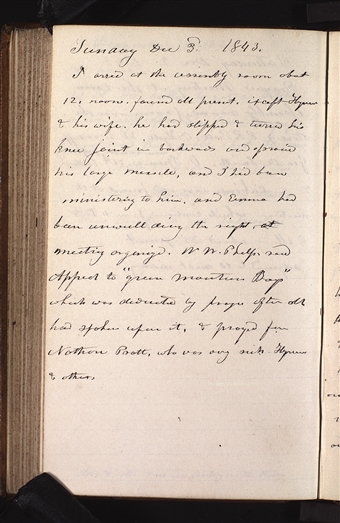 Sunday Dec 3. 1843.
I arrived at the assembly room about
12. noon. found all present. except Hyrum
& his wife. he had slipped & turned his
knee joint in backwards and sprained
his large muscle, and I had been
ministering to him. and Emma had
been unwell during the night at
meeting organized. W W. Phelps read
Appeal to "green mountain Boys"
which was dedicated by prayer after all
had spoken upon it, & prayed for
Nathan Pratt, who was very sick. Hyrum
& others.